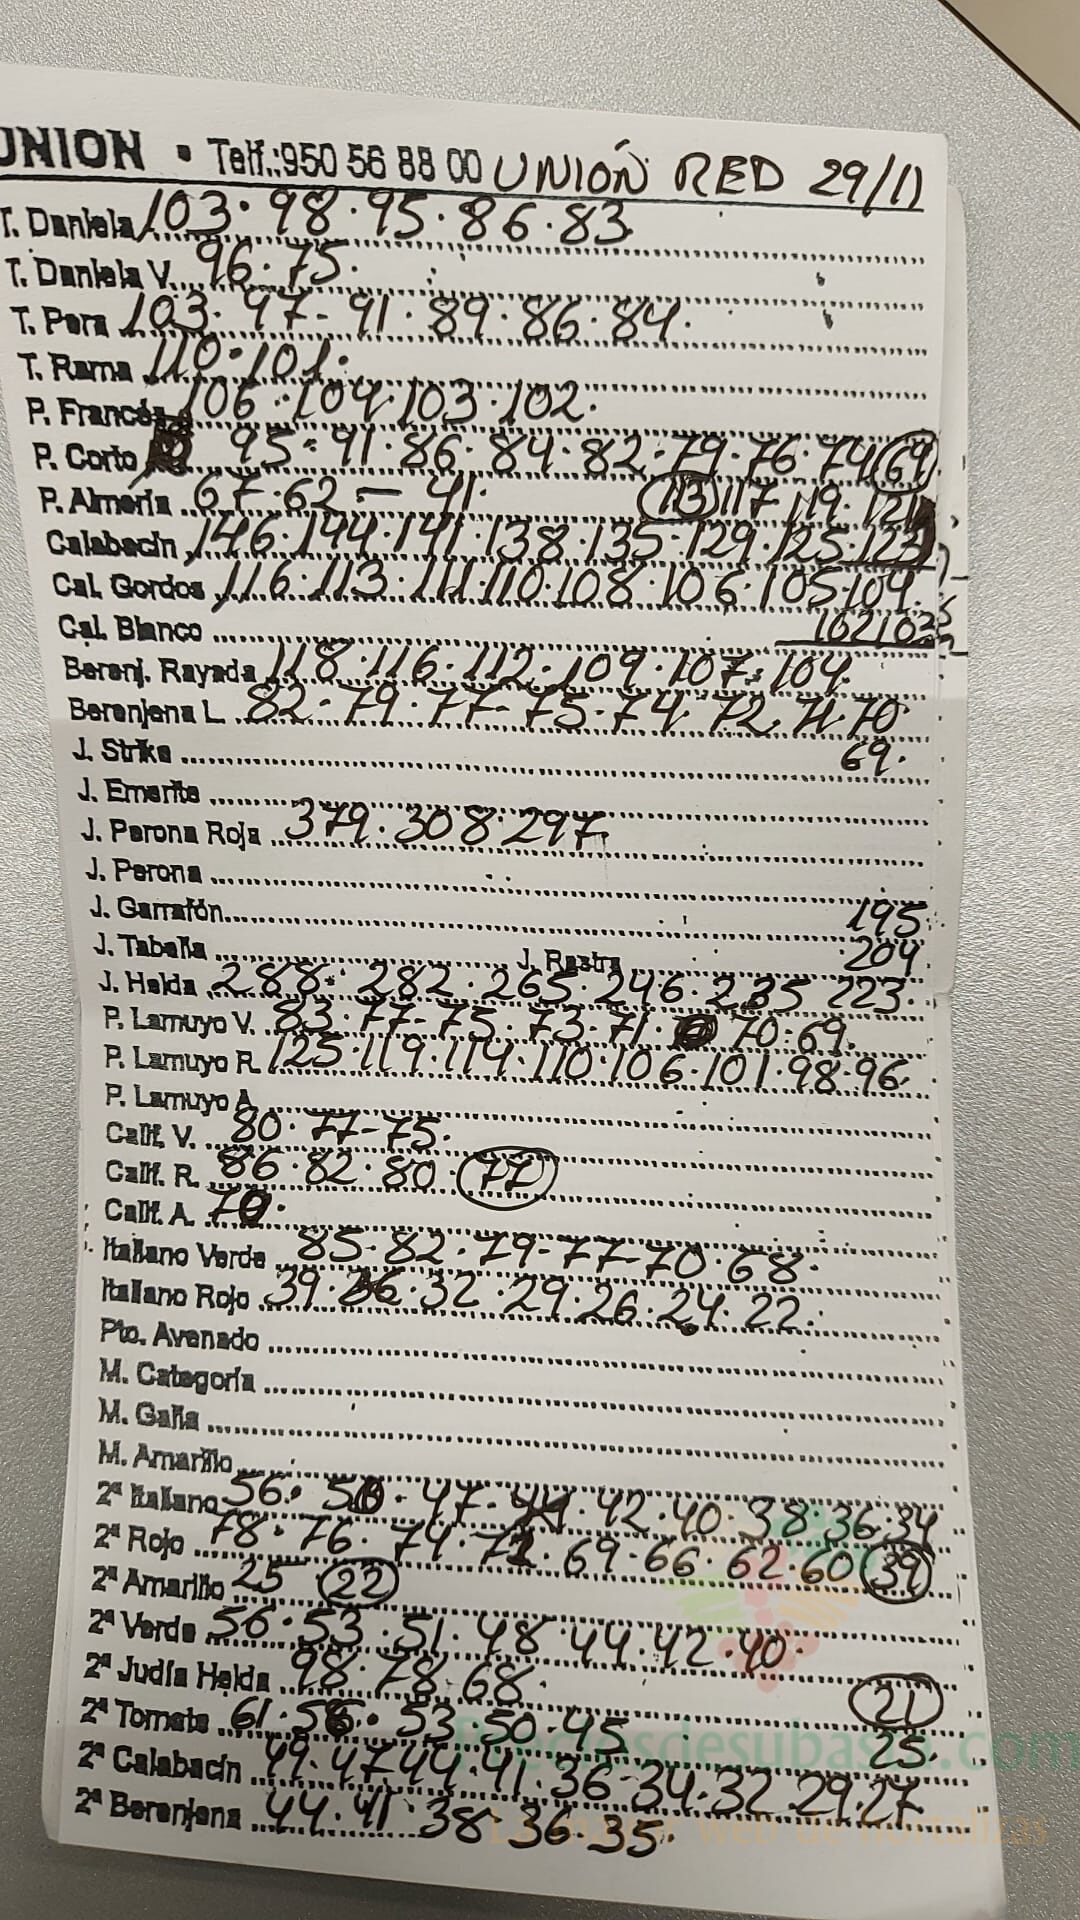 UNION • Telf.:950 56 88 00 UNIÓN RED 29/11
T. Daniela 103·98·95·86·83
T. Daniela V. 96·75·
T. Pera 103·97-91·89·86·84·
T. Rama 110·101·
P. Francés 106·104·103·102·
P. Corto 95·91·86·84·82·79·76·74 69
P. Almería 67·62-41· 113 117 119·121
Calabacín 146·144·141·138·135·129·125·123
Cal. Gordos 116·113·111·110·108·106·105·104·
Cal. Blanco 102103
Berenj. Rayada 118·116·112·109·107·104·
Berenjena L. 82·79·77-75·74·72 71·70·
J. Strike 69·
J. Emerite
J. Perona Roja 379·308·297
J. Perona
J. Garrafón 195
J. Tabella J. Rastra 204
J. Helda 288·282·265·246·235 223·
P. Lamuyo V. 83·77-75·73·71· 70·69·
P. Lamuyo R. 125·119·114·110·106·101·98·96·
P. Lamuyo A.
Calif. V. 80·77-75·
Calif. R. 86·82·80·77
Calif. A. 70·
Italiano Verde 85·82·79-77-70·68·
Italiano Rojo 39·36·32·29·26·24·22·
Pto. Avenado
M. Categoría
M. Galia
M. Amarillo
2ª Italiano 56· 47-44·42·40·38·36·34
2ª Rojo 78·76·74·72·69·66·62·60 39
2ª Amarillo 25 22
2ª Verde 56·53·51·48·44·42·40·
2ª Judía Helda 98·78·68· 21
2ª Tomate 61·56·53·50·45 25·
2ª Calabacín 49·47 44·41·36-34·32 29·27
2ª Berenjena 44·41·38·36·35·
Preciosdesubasta.com
La mayor web de hortalizas